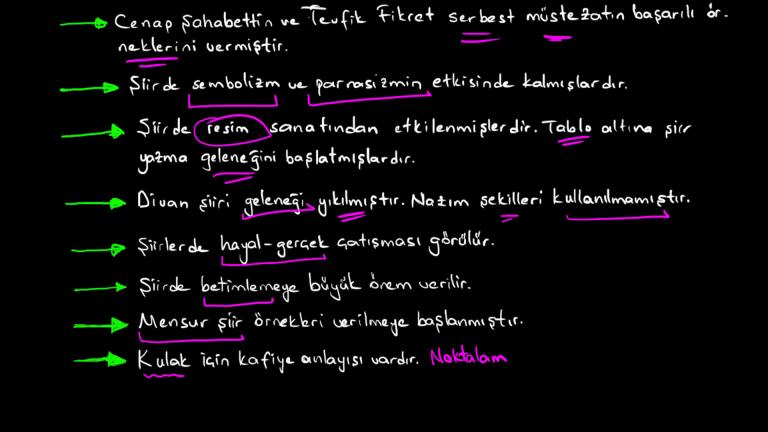 Cenap Şahabettin ve Tevfik Fikret serbest müstezatın başarılı ör.
neklerini vermiştir.
Şiirde sembolizm ve parnasizmin etkisinde kalmışlardır.
Şiirde resim sanatından etkilenmişlerdir. Tablo altına şiir
yazma geleneğini başlatmışlardır.
Divan şiiri geleneği yıkılmıştır. Nazım şekilleri kullanılmamıştır.
Şiirlerde hayal-gerçek çatışması görülür.
Şiirde betimlemeye büyük önem verilir.
Mensur şiir örnekleri verilmeye başlanmıştır.
Kulak için kafiye anlayışı vardır. Noktalam